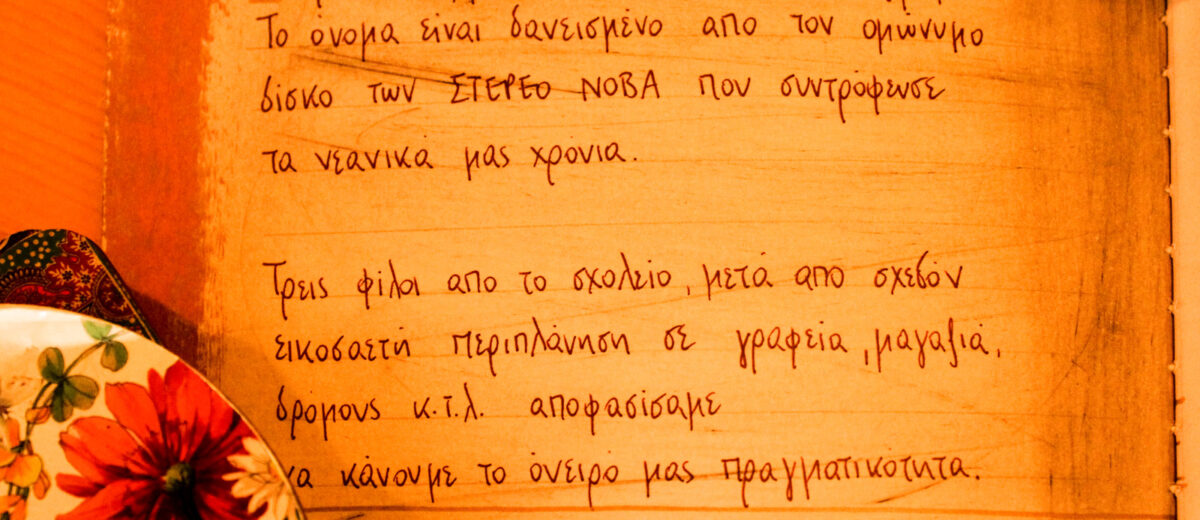 Το όνομα είναι δανεισμένο απο τον ομώνυμο
δίσκο των ΣΤΕΡΕΟ ΝΟΒΑ που συντρόφευσε
τα νεανικά μας χρόνια.
Τρεις φίλοι απο το σχολείο, μετά απο σχεδόν
εικοσαετή περιπλάνηση σε γραφεία, μαγαζιά,
δρόμους κ.τ.λ. αποφασίσαμε
να κάνουμε το όνειρό μας πραγματικότητα.